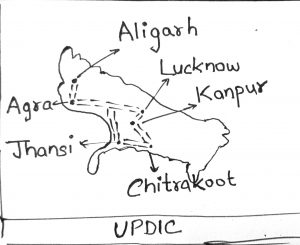 Aligarh
Lucknow
Kanpur
Agra
Jhansi
Chitrakoot
UPDIC